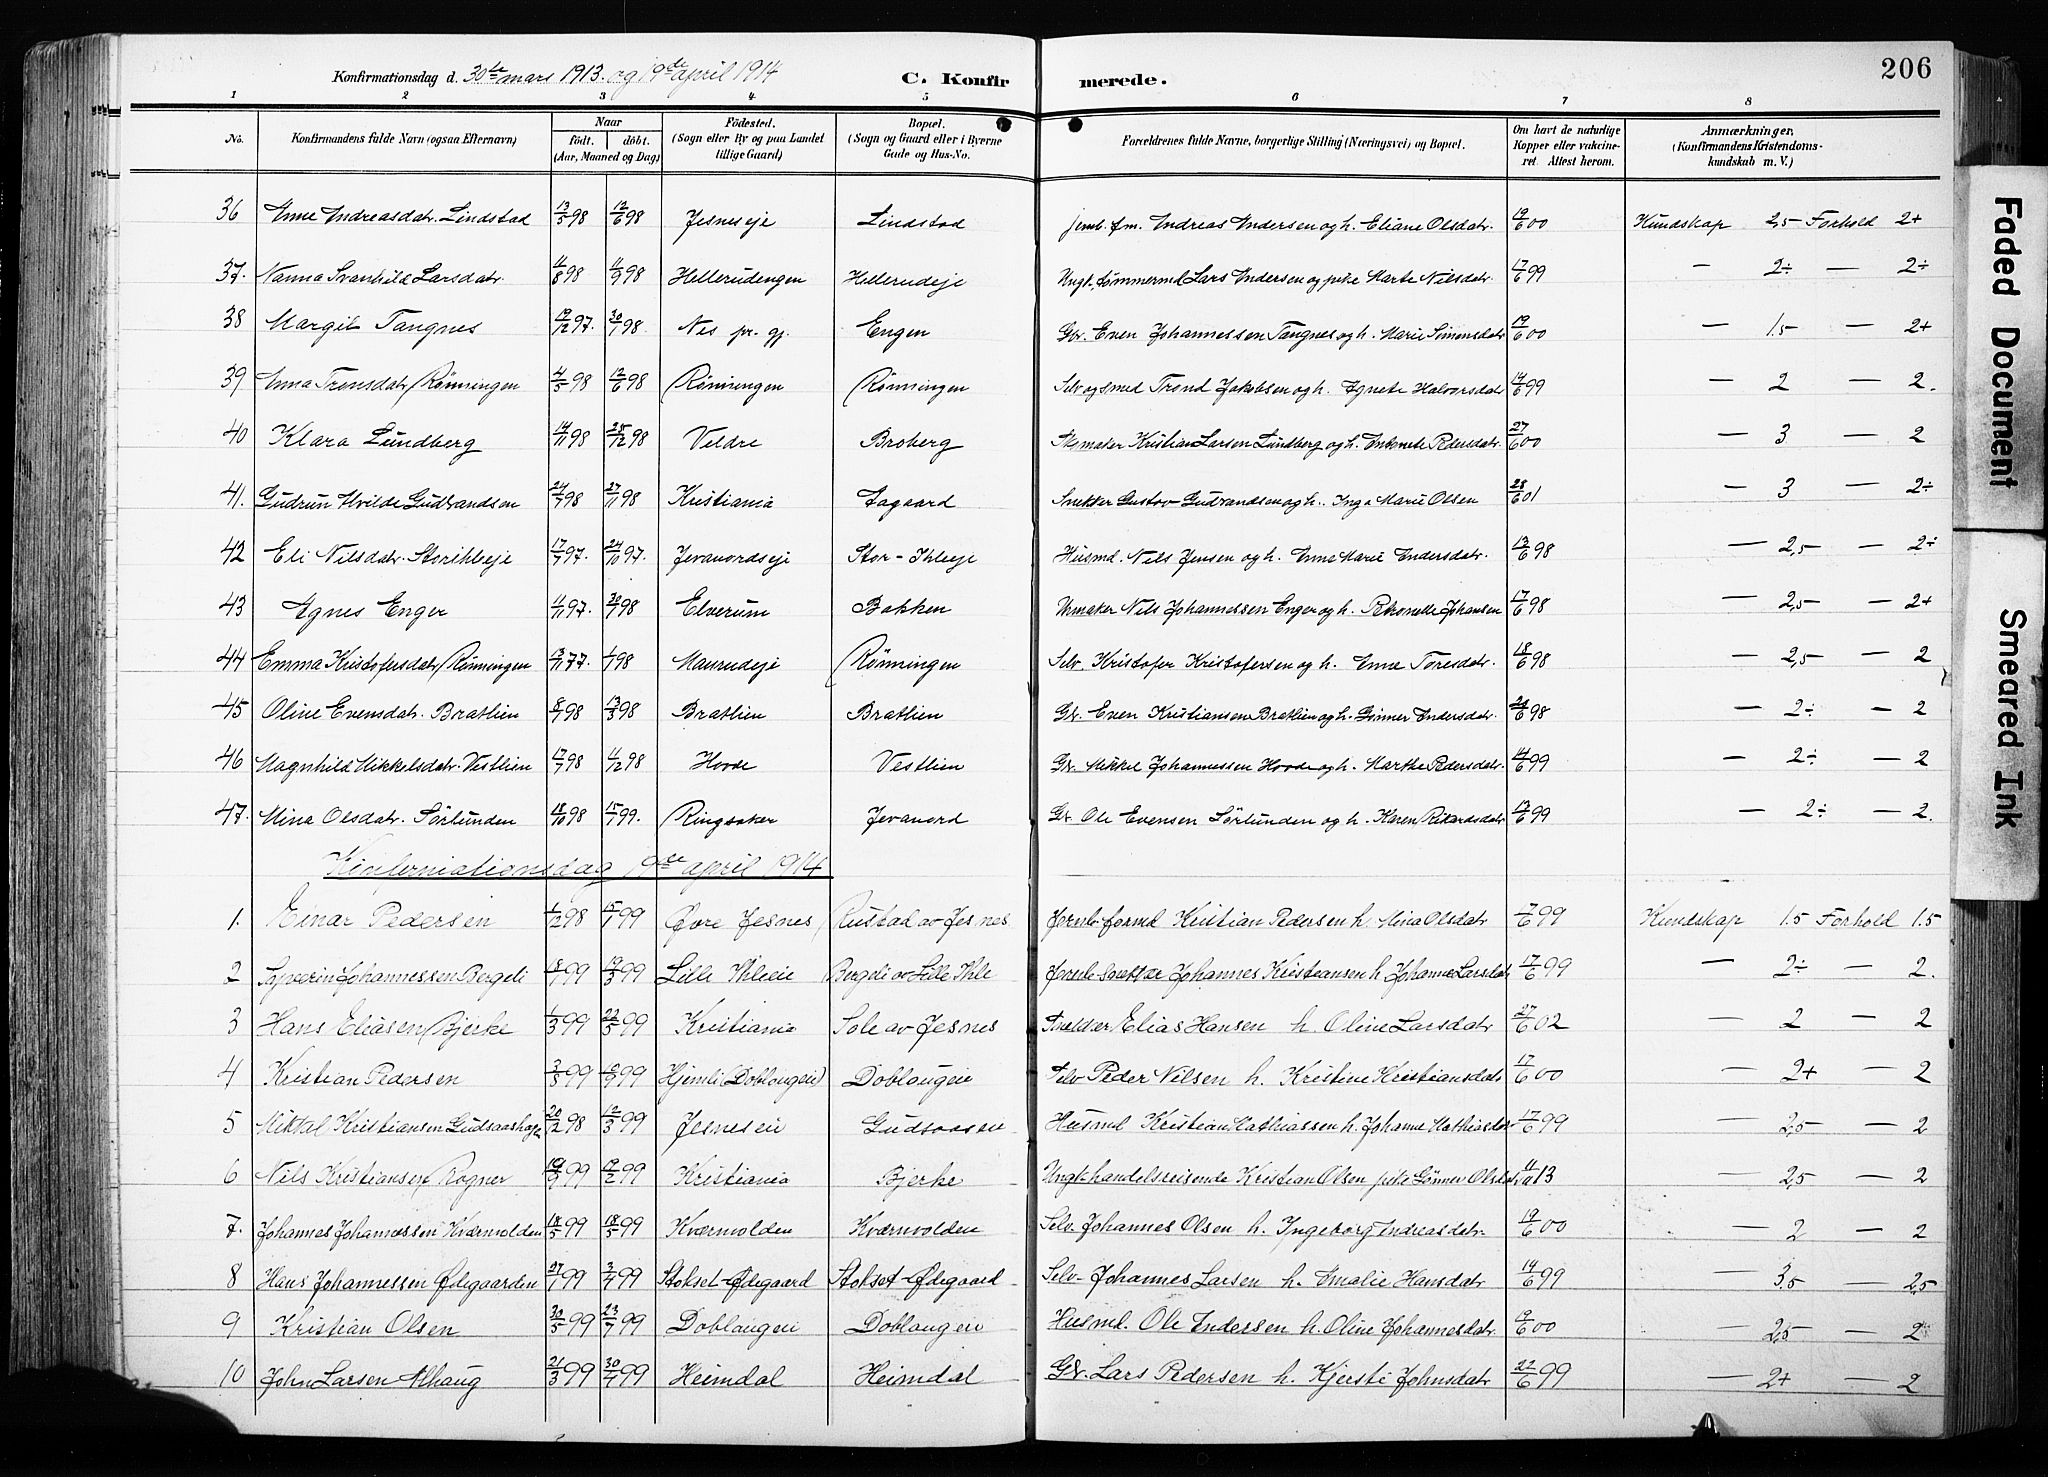 206
Konfirmationsdag d. 30te mars 1913. og 19de april 1914 C. Konfirmerede.
1 2 3 4 5 6 7 8
No. Konfirmandens fulde Navn (ogsaa Efternavn) Naar født. døbt. (Aar, Maaned og Dag) Fødested. (Sogn eller By og paa Landet tillige Gaard) Bopæl. (Sogn og Gaard eller i Byerne Gade og Hus-No. Forældrenes fulde Navne, borgerlige Stilling (Næringsvei) og Bopæl. Om havt de naturlige Kopper eller vakcineret. Attest herom. Anmærkninger. (Konfirmandens Kristendomskundskab m. V.)
36 Anne Andreasdatr. Lindstad 13/5 98 12/6 98 Jesneseje Lindstad jernb. fm. Andreas Andersen og h. Eliane Olsdatr. 19/6 00 Kundskap 2,5 Forhold 2+
37. Nanna Svanhild Larsdatr 11/8 98 11/9 98 Hellerudengen Hellerudeje Ungk. tømmermd Lars Andersen og pike Marte Nilsdatr. 17/6 99 — 2÷ — 2÷
38 Margit Tangnes 19/12 97. 30/1 98. Nes pr. gj. Engen Gbr. Even Johannessen Tangnes og h. Marie Simensdatr 19/6 00 — 1.5 — 2+
39 Anna Tronsdatr Rønningen 4/5 98 12/6 98 Rønningen Rønningen Selv og smed Trond Jakobsen og h. Agnete Halvorsdatr 14/6 99 — 2 — 2.
40 Klara Lundberg 14/11 98 25/12 98 Veldre Broberg Skomaker Kristian Larsen Lundberg og h. Antonete Pedersdatr. 27/6 00 — 3 — 2
41. Gudrun Alvilde Gudbrandsen 24/7 98 27/11 98 Kristiania Aagaard Snekker Gustav Gudbrandsen og h. Inga Marie Olsen 28/6 01 — 3 — 2÷
42 Eli Nilsdatr. Storihleje 17/7 97. 24/10 97. Jevanordseje Stor-Ihleeje Husmd. Nils Jensen og h. Anne Marie Andersdatr. 13/6 98 — 2,5 — 2÷
43 Agnes Enger 11/11 97. 30/1 98 Elverum Bakken Urmaker Nils Johannessen Enger og h. Petronelle Johansen 17/6 98 — 2,5 — 2+
44 Emma Kristofersdatr Rønningen 13/11 77. 1/1 98 Maurudeje Rønningen Selv. Kristofer Kristofersen og h. Anne Toresdatr. 18/6 98 — 2,5 — 2
45 Oline Evensdatr. Bratlien 8/1 98 13/3 98 Bratlien Bratlien Gbr. Even Kristiansen Bratlien og h. Gunner Andersdatr. 24/6 98 — 2÷ — 2
46 Magnhild Mikkelsdatr. Vestlien 17/7 98 11/12 98 Hovde Vestlien Gbr. Mikkel Johannessen Hovde og h. Marthe Pedersdatr. 14/6 99 — 2÷ — 2
47. Mina Olsdatr. Sørlunden 18/10 98 15/1 99. Ringsaker Jevanord Gbr. Ole Evensen Sørlunden og h. Karen Rikardsdatr 13/6 99 — 2÷ — 2.
Konfermationsdag 19de april 1914
1. Einar Pedersen 1/12 98 15/1 99 Øvre Jesnes Rustad av Jesnes Jernb. formd Kristian Pedersen h. Mina Olsdatr 17/6 99 Kundskap 1.5 Forhold 1.5
2 Syverin Johannessen Bergeli 18/1 99 19/3 99 Lille Ihleie Bergeli av Lille Ihle Johannes Kristiansen h Johanne Larsdatr 17/6 99 — 2÷ — 2.
3 Hans Eliasen Bjerke 1/3 99 22/5 99 Kristiania Sole av Jesnes Elias Hansen h. Oline Larsdatr 27/6 02 — 2 — 2
4 Kristian Pedersen 3/8 99 10/9 99 Hjemli (Doblougeie) Doblougeie Selv Peder Nilsen h. Kristine Kristiansdatr 17/6 00 — 2+ — 2
5 Miktal Kristiansen Gudsaashagen 20/12 98 12/3 99 Jesneseie Gudsaasen Husmd Kristian Mathiassen h. Johanne Mathiasdatr 17/6 99 — 2,5 — 2
6 Nils Kristiansen Rogner 19/9 99 19/2 99 Kristiania Bjerke Ungk. handelsreisende Kristian Olsen pike Gunner Olsdatr 11/11 13 — 2,5 — 2
7. Johannes Johannessen Kværnvolden 18/5 99 18/5 99 Kværnvolden Kværnvolden Selv. Johannes Olsen h. Ingeborg Andreasdatr. 19/6 00 — 2 — 2
8 Hans Johannessen Ødegaarden 27/1 99 3/4 99 Stokset-Ødegaard Stokset-Ødegaard Selv. Johannes Larsen h. Amalie Hansdatr 14/6 99 — 3,5 — 2,5
9 Kristian Olsen 30/5 99 23/7 99 Doblougeie Doblougeie Husmd. Ole Andersen h. Oline Johannesdatr. 19/6 00 — 2,5 — 2
10 John Larsen Alhaug 21/3 99 30/4 99 Heimdal Heimdal Gbr. Lars Pedersen h. Kjersti Johnsdatr 22/6 99 — 2+ — 2
Faded Document
Smeared Ink